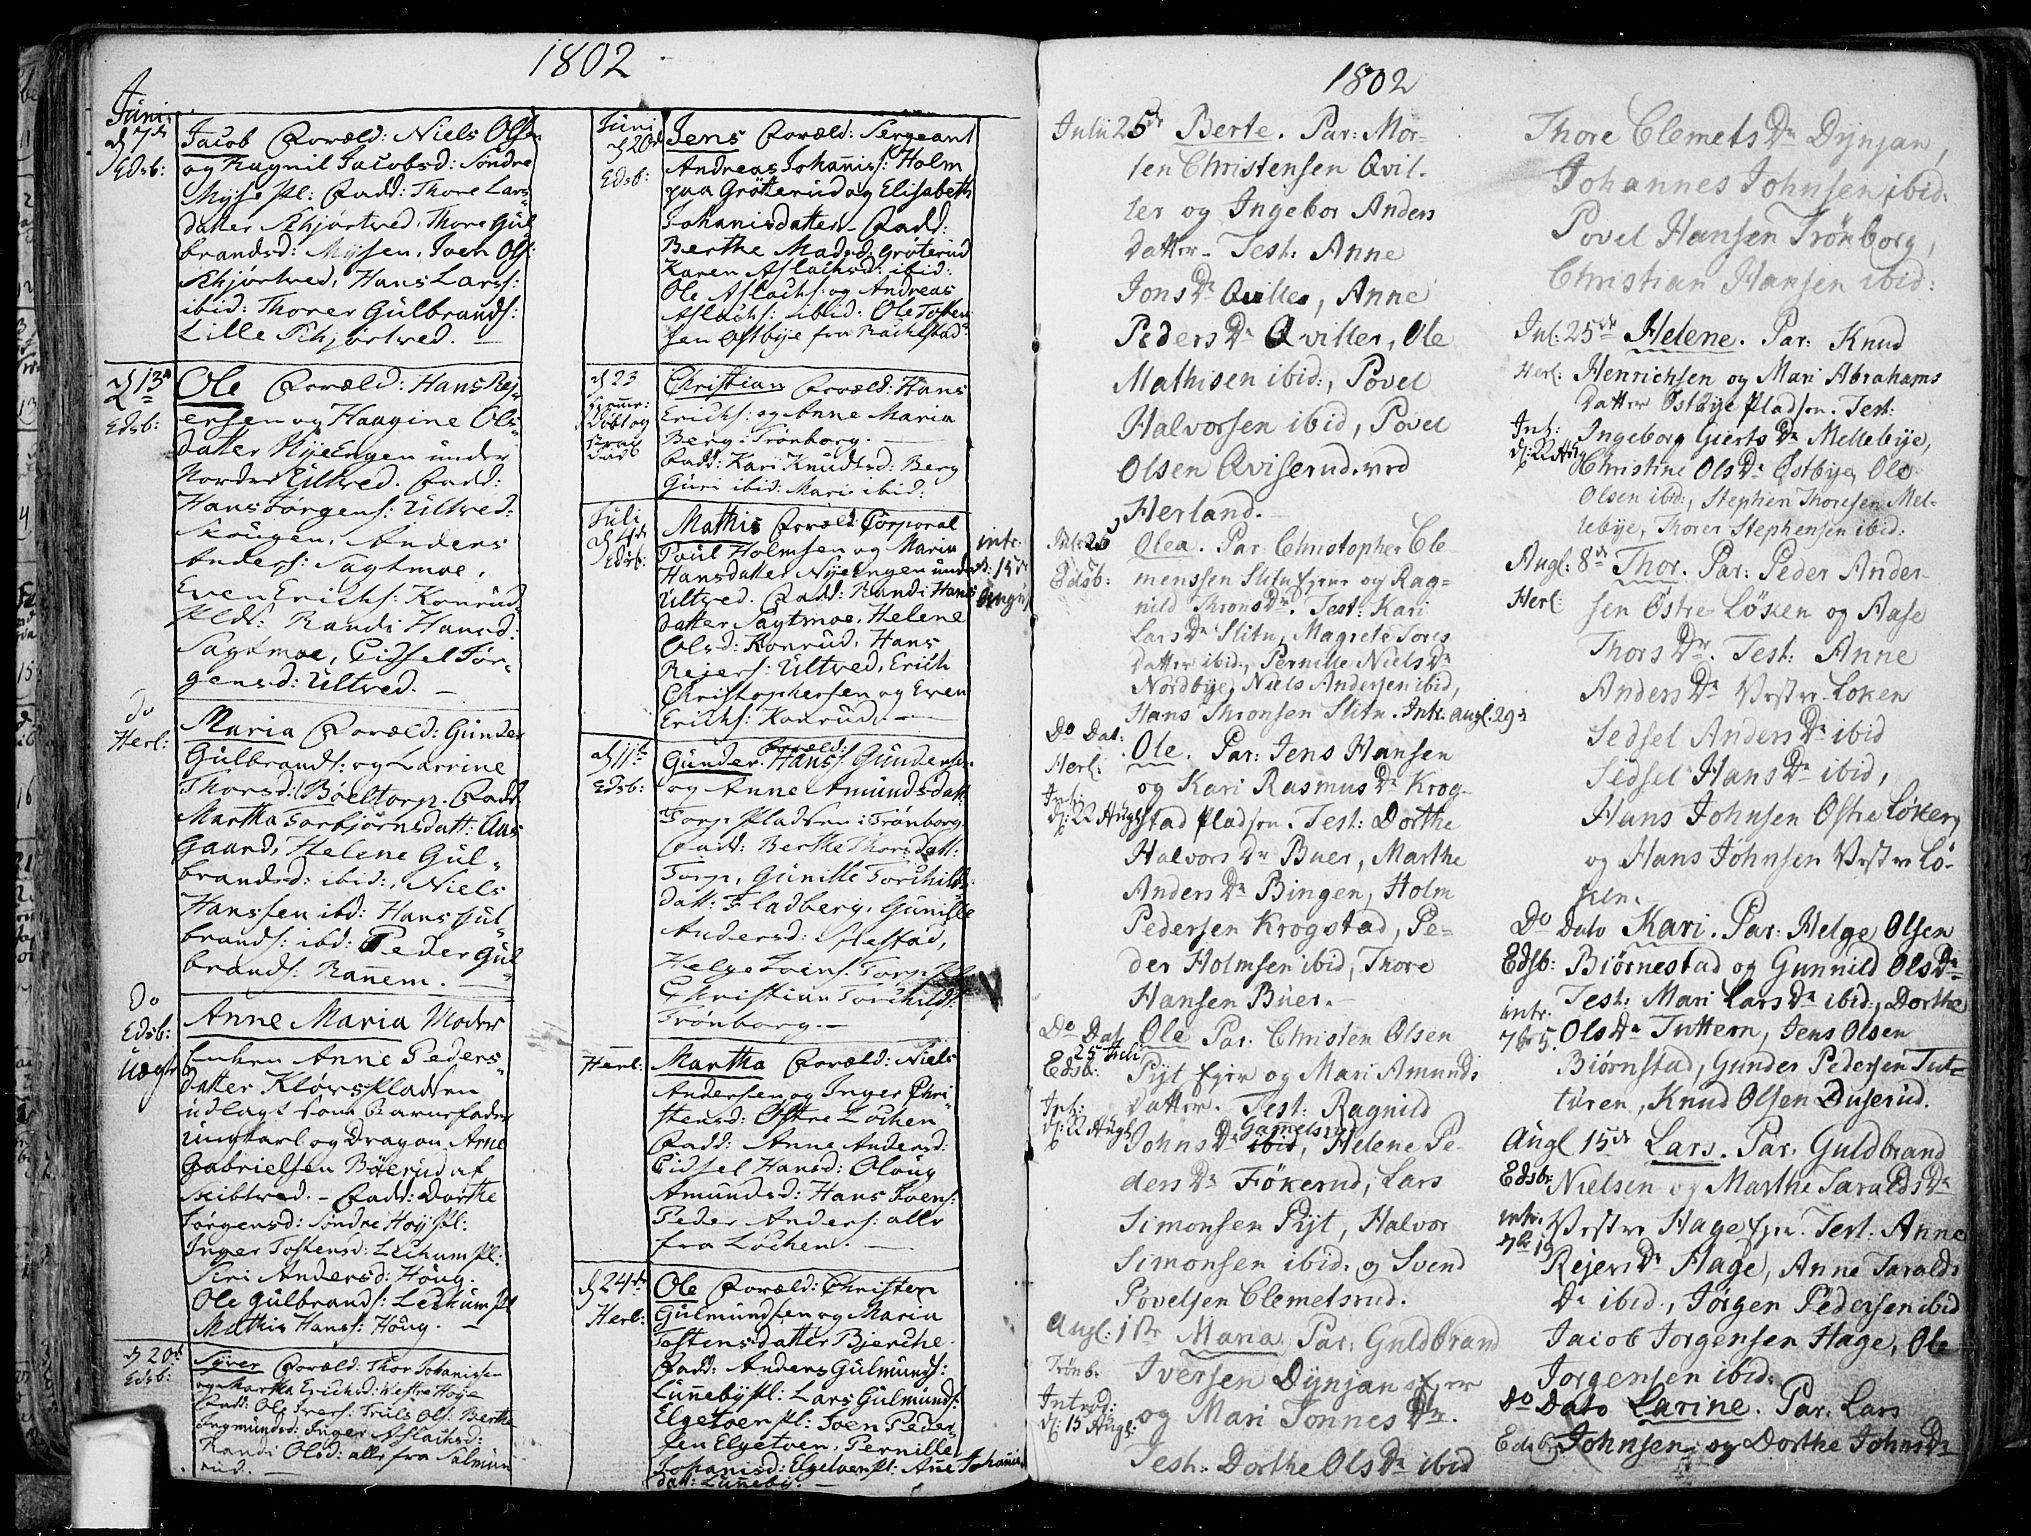 1802
Juni
d 7de Jacob Foræld: Niels Ols:
Edsb: og Ragnil Jacobsd: Søndre
Myse Pl: Fadd: Thore Lars
datter Skjørtved, Thore Gul
brandsd: Mysen, Joen Ols:
Skjørtved, Hans Larss:
ibid: Thorer Gulbrands:
Lille Skjørtved. —
d 13de Ole Foræld: Hans Rej-
Edsb: ersen og Haagine Ols
datter NyeEngen under
Nordre Ultved. Fadd:
Hans Jørgens: Ultved:
Skougen, Anders
Anders: Sagtmoe,
Even Erichs: Konrud
Plds: Randi Hansd:
Sagtmoe, Sidsel Jør-
gensd: Ultved. —
do Maria Foræld: Gunder
Herl: Gulbrands: og Larrine
Thorsd: Bøeltorp. Fadd:
Martha Torbjørnsdatt: Aas
Gaard, Helene Gul-
brandsd: ibid:, Niels
Hanssen ibd: Hans Gul-
brands: ibd: Peder Gul-
brands: Ranem. —
Do Anne Maria Moder
Edsb: Enken Anne Peders
Uægte datter Kløvs Pladsen
udlagt som Barnefader
ungkarl og Dragon Arne
Gabrielsen Bøerud af
Skibtved. — Fadd: Dorthe
Jørgensd: Søndre Høy Pl:
Inger Tostensd: Lechum Pl:
Siri Andersd: Høug.
Ole Gulbrands: Lechum Pl
Mathis Hanss: Høug. —
d 20de Syver Foræld: Thor Johanissen
Edsb: og Martha Erichsd: Westre Høye
Fadd: Ole Ivers: Truls Ols: Berthe
Ingmundsd: Inger Aslachsd:
Randi Olsd: alle fra Salmun
rud. —
Juni
d 20de Jens Foræld: Sergeant
Edsb: Andreas Johaniss: Holm
paa Grøtterud og Elisabeth
Johanisdatter — Fadd:
Berthe Madsd: Grøterud
Karen Aslachsd: ibid:
Ole Aslachs: og Andreas
Aslachs: ibid: Ole Tosten
sen Østbye fra Rachestad
d 23 Christian Foræld: Hans
Hiemme: Erichs: og Anne Maria
Døbt og Berg i Trønborg. —
Fadd: Kari Knudtsd: Berg
Guri ibid: Mari ibid:
Juli
d 4de Mathis Foræld: Corporal
Edsb: Poul Holmsen og Maria
Hansdatter NyeEngen under
Ultved. Fadd: Randi Hans
datter Sagtmoe, Helene
Olsd: Konrud, Hans
Rejers: Ultved, Erich
Christophersen og Even
Erichs: Konrud. —
intr.
d: 15de
Augus
d 11te Gunder Foræld: Hans Gunders:
Edsb: og Anne Amundsdatt:
Torp Pladsen i Trønborg.
Fadd: Berthe Thorsdatt:
Torp, Gunille Torchilds
datt: Fladberg, Gunille
Andersd: Slestad,
Helge Joens: Torp Pl
Christian Torchilds:
Trønborg. —
Herl: Martha Foræld: Niels
Andersen og Inger Chri-
stensd: Østre Løchen
Fadd: Anne Andersd:
Sidsel Hansd: Oloug
Amundsd: Hans Joens:
Peder Anders: alle
fra Løchen. —
d 24de Ole Foræld: Christen
Herl: Gulmundsen og Maria
Tostensdatter Bjerche.
Fadd: Anders Gulmunds:
Lunneby Pl: Lars Gulmunds:
Elgetoen Pl: Joen Peder-
sen Elgetoen, Pernille
Johanisd: Elgetoen Pl: Ane Johanis
datt: Lunneby. —
1802
Julii 25de Berte. Par: Mor-
ten Christensen Qvil-
ler og Ingebor Anders
Datter — Test: Anne
Jons Dr Qviller, Anne
Peders Dr Qviller, Ole
Mathisen ibid:, Povel
Halvorsen ibid, Povel
Olsen Qviserud ved
Herland. —
Jul: 25 Olea. Par: Christopher Cle
Edsb: menssen Slitu Ejer og Rag-
nild Throns Dr. Test: Kari
Lars Dr Slitu, Magrete Tores
Datter ibid, Pernille Niels Dr
Nordbye, Niels Andersen ibid,
Hans Thronsen Slitu. Intr. Augl. 29de
Do Dat: Ole. Par: Jens Hansen
Herl: og Kari Rasmus Dr Krog-
Int: d: 22 Augl stad Pladsen. Test: Dorthe
Halvors Dr Buer, Marthe
Anders Dr Bingen, Holm
Pedersen Krogstad, Pe-
der Holmsen ibid, Thore
Hansen Buer. —
Do Dat Ole Par: Christen Olsen
25 Juli
Edsb: Pyt Ejer og Mari Amunds
Int: Datter. Test: Ragnild
d: 22 Augl Johns Dr ibid Gamelsrud, Helene Pe-
ders Dr Føkerud, Lars
Simonsen Pyt, Halvor
Simonsen ibid: og Svend
Povelsen Clemetsrud.
Augl: 1ste Maria, Par: Guldbrand
Trønb. Iversen Dynjan Ejer
Introd: og Mari Tonnes Dr.
d: 15 Augl: Test: Dorthe Ols Dr ibid
Thore Clemets Dr Dynjan,
Johannes Johnsen ibid:
Povel Hansen Trönborg,
Christian Hansen ibid:
Jul: 25de Helene. Par: Knud
Herl: Henrichsen og Mari Abrahams
Datter Østbye Pladsen. Test:
Int: Ingeborg Gierts Dr Mellebye,
d: 22 Aug Christine Ols Dr Østbye, Ole
Olsen ibid:, Stephen Thoresen Mel-
lebye, Thorer Stephensen ibid:
Augl: 8de Thor. Par: Peder Ander-
Herl: sen Østre Løken og Aase
Thors Dr. Test: Anne
Anders Dr Vestre Løken
Sedsel Anders Dr ibid
Sidsel Hans Dr ibid,
Hans Johnsen Østre Løken,
og Hans Johnsen Vestre Lø-
ken.
Do Dato Kari. Par: Helge Olsen
Edsb: Biørnestad og Gunnild Ols Dr
Test: Mari Lars Dr ibid:, Dorthe
intr. Ols Dr Tuttern, Jens Olsen
7br 5. Biørnstad, Gunder Pedersen Tut-
turen, Knud Olsen Duserud.
Augl 15de Lars. Par: Guldbrand
Edsb: Nielsen og Marthe Taralds Dr
intr. Vestre Hage Ejer. Test: Anne
7br 19 Rejers Dr Hage, Anne Taralds
Dr ibid, Jørgen Pedersen ibid
Jacob Jorgensen Hage, Ole
Jorgensen ibid:
Do Dato Larine. Par: Lars
Edsb: Johnsen og Dorthe Johns Dr